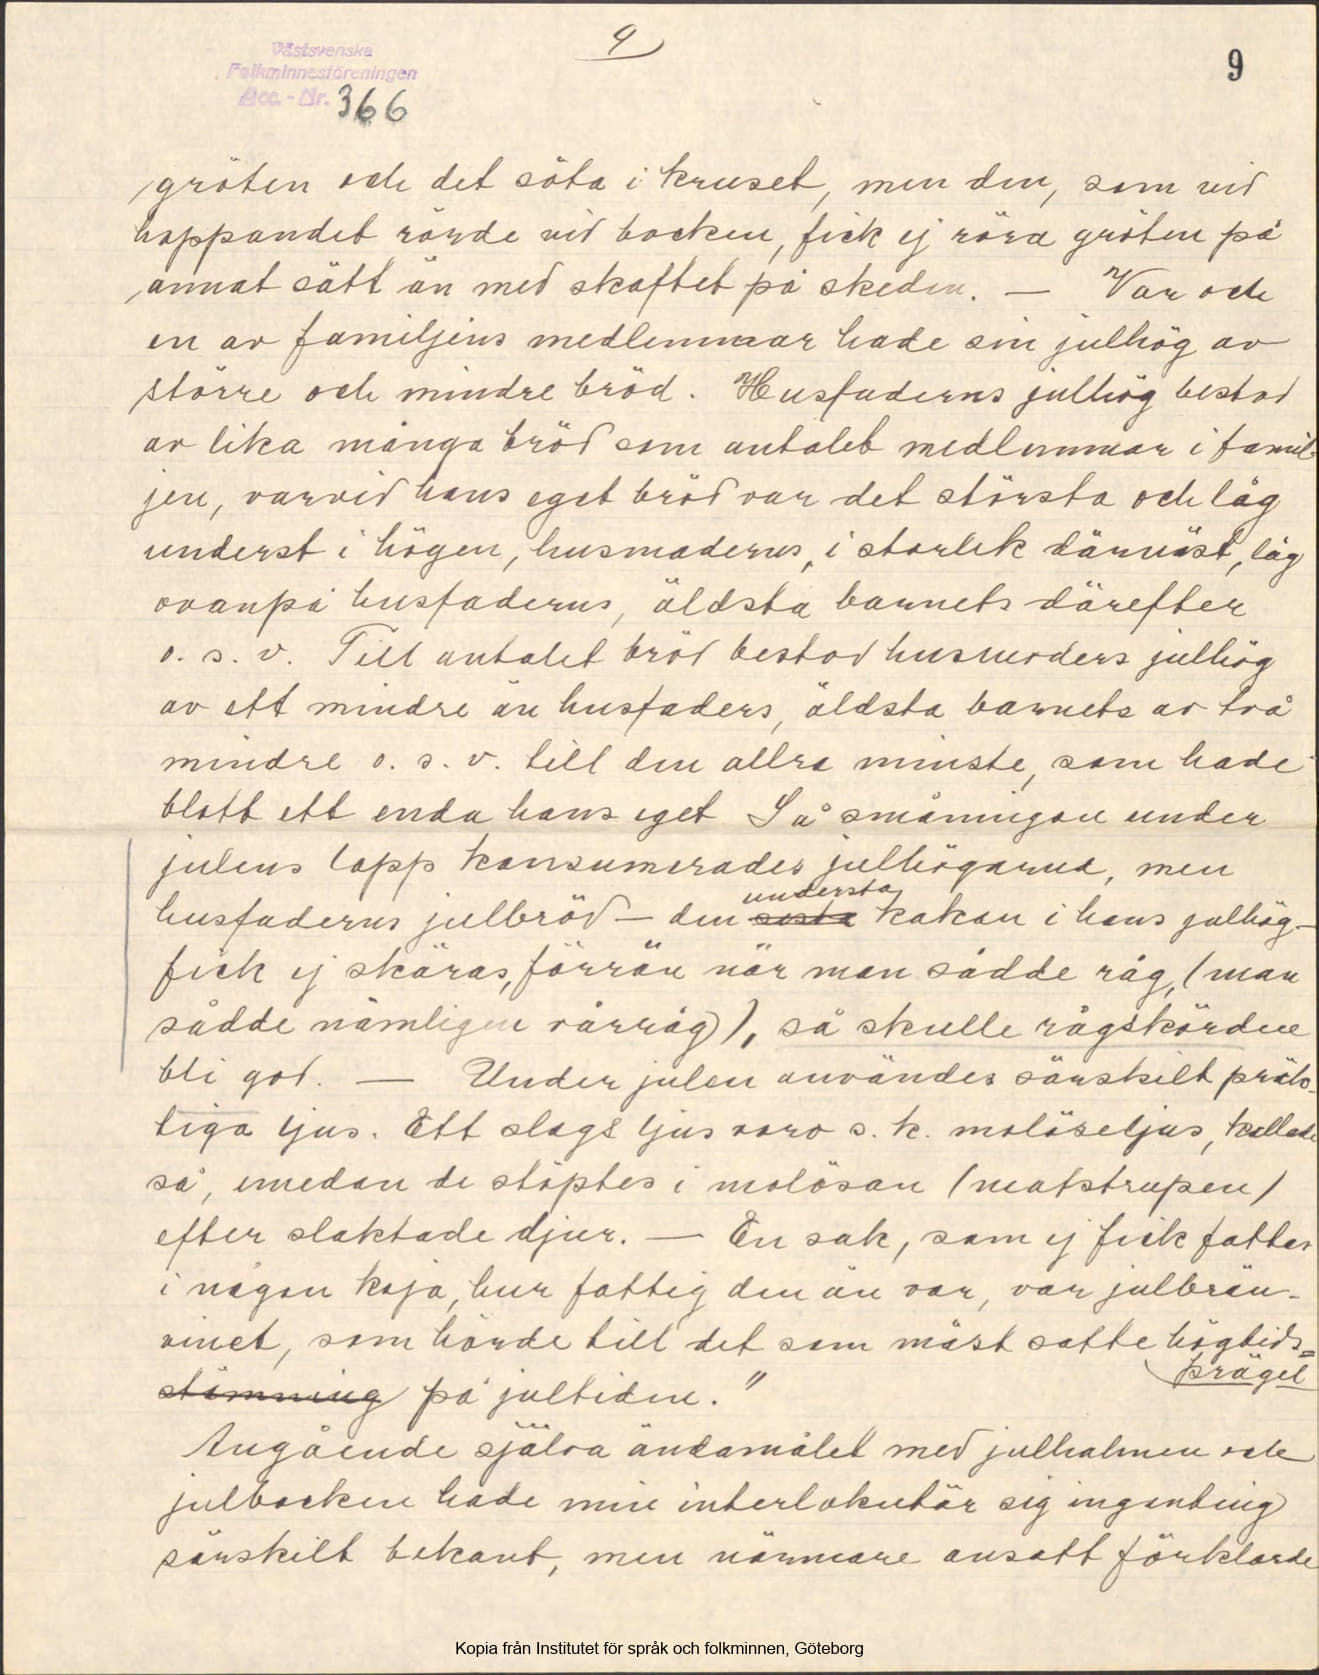 9
9
Västsvenska
Folkminnesföreningen
Acc. - Nr. 366
gröten och det söta i kruset, men den, som vid
hoppandet rörde vid bocken, fick ej röra gröten på
annat sätt än med skaftet på skeden. — Var och
en av familjens medlemmar hade sin julhög av
större och mindre bröd. Husfaderns julhög bestod
av lika många bröd som antalet medlemmar i famil-
jen, varvid hans eget bröd var det största och låg
underst i högen, husmoderns, i storlek därnäst, låg
ovanpå husfaderns, äldsta barnets därefter
o. s. v. Till antalet bröd bestod husmoders julhög
av ett mindre än husfaders, äldsta barnets av två
mindre o. s. v. till den allra minste, som hade
blott ett enda hans eget Så småningom under
julens lopp konsumerades julhögarna, men
understa
husfaderns julbröd — den sista kakan i hans julhög —
fick ej skäras, förrän när man sådde råg, (man
sådde nämligen vårråg), så skulle rågskörden
bli god. — Under julen användes särskilt präk-
tiga ljus. Ett slags ljus voro s. k. molöseljus, kallade
så, emedan de stöptes i molösan (matstrupen)
efter slaktade djur. — En sak, som ej fick fattas
i någon koja, hur fattig den än var, var julbrän-
vinet, som hörde till det som mäst satte högtids=
prägel
stämning på jultiden."
Angående själva ändamålet med julhalmen och
julbocken hade min interlokutör sig ingenting
särskilt bekant, men närmare ansatt förklarde
Kopia från Institutet för språk och folkminnen, Göteborg